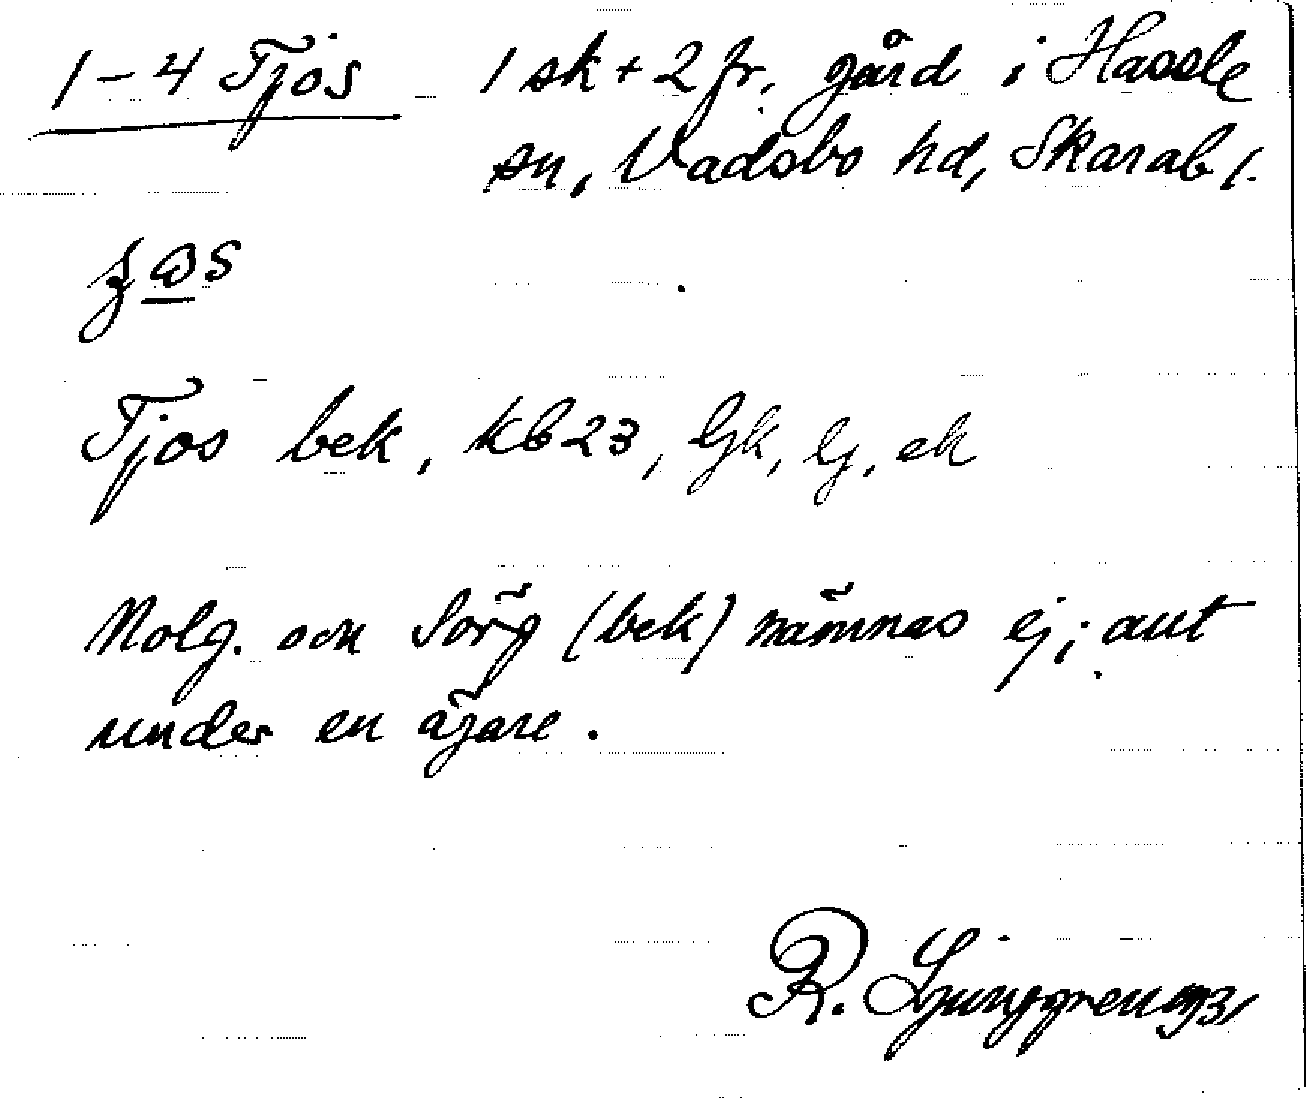 1-4 Tjos 1 sk + 2 fr. gård i Hassle
sn, Vadsbo hd, Skarab l.
Tjos bek, kb 23, Gk, lj, ek
Nolg. och Sörg (bek) nämnas ej; ant
under en ägare.
R. Ljunggren 1931